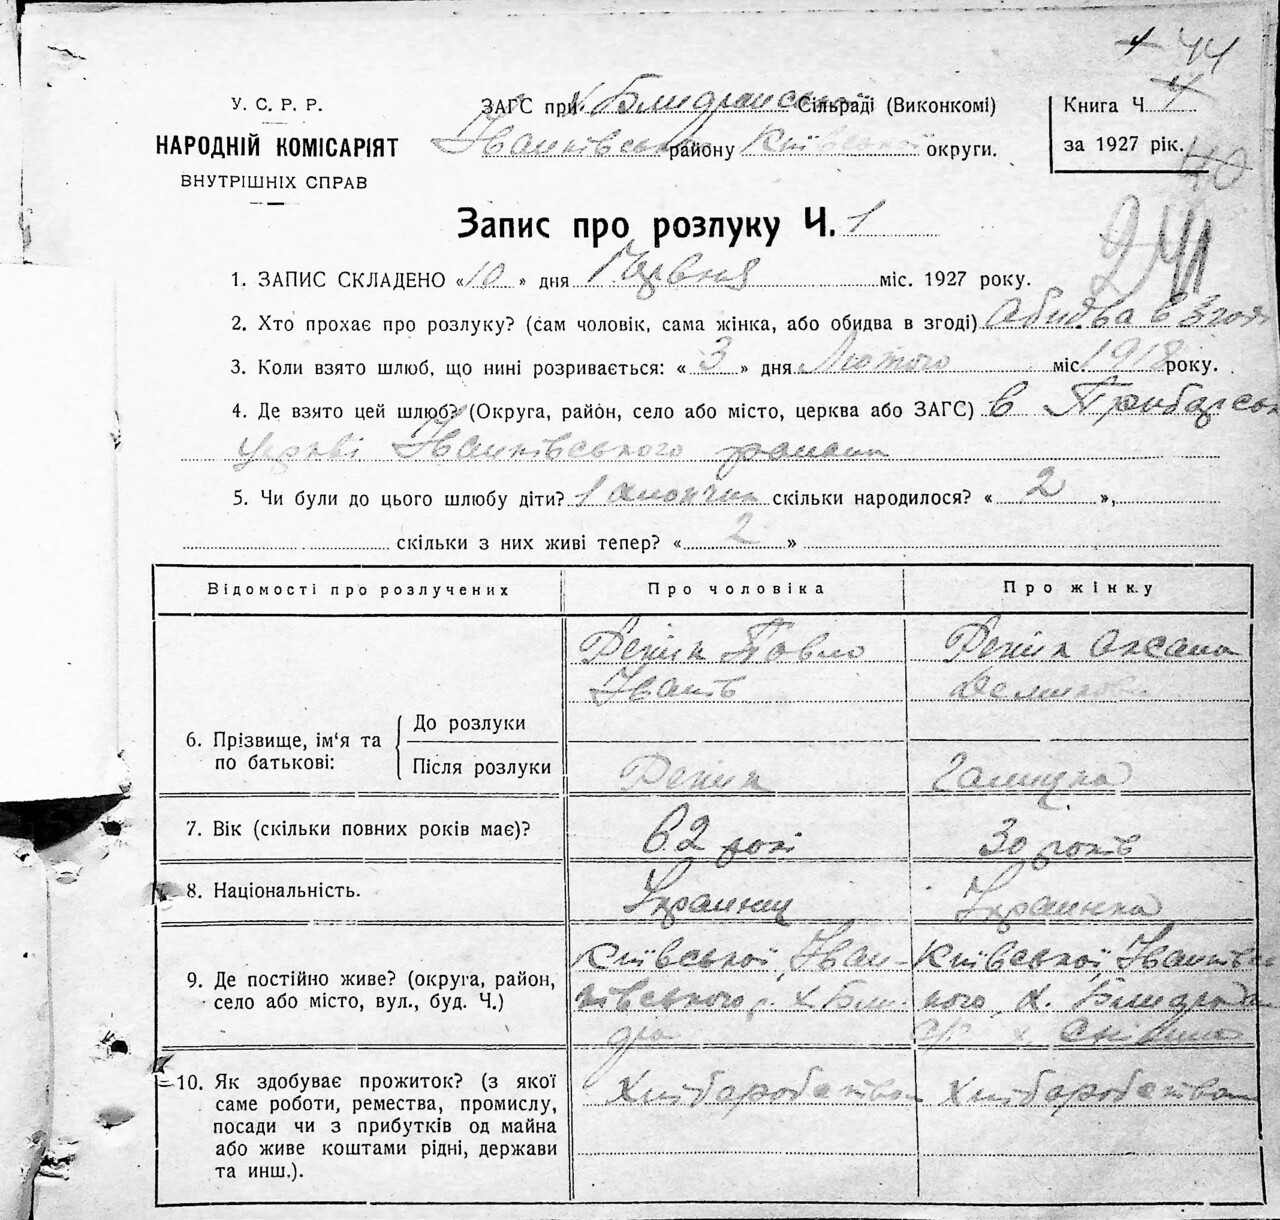 44
У. С. Р. Р.
НАРОДНІЙ КОМІСАРІЯТ
ВНУТРІШНІХ СПРАВ
ЗАГС при Сільраді (Виконкомі)
Іванківськ району Київської округи.
Книга Ч. 4
за 1927 рік.
40
241
Запис про розлуку Ч. 1
1. ЗАПИС СКЛАДЕНО «10» дня Червня міс. 1927 року.
2. Хто прохає про розлуку? (сам чоловік, сама жінка, або обидва в згоді) Обидва в згоді
3. Коли взято шлюб, що нині розривається: «3» дня Лютого міс. 1918 року.
4. Де взято цей шлюб? (Округа, район, село або місто, церква або ЗАГС) в
церкві Іванківського
5. Чи були до цього шлюбу діти? 1 скільки народилося? «2»,
скільки з них живі тепер? «2»
Відомості про розлучених Про чоловіка Про жінку
Репик Павло Репик Оксана
Іванів
6. Прізвище, ім'я та по батькові: До розлуки
Після розлуки Репик
7. Вік (скільки повних років має)? 62 рокі 30 років
8. Національність. Украинец Украинка
9. Де постійно живе? (округа, район, село або місто, вул., буд. Ч.) Київської, Іван- Київської, Іванківсь
ківського, х. кого, х.
10. Як здобуває прожиток? (з якої Хліборобством Хліборобством
саме роботи, ремества, промислу,
посади чи з прибутків од майна
або живе коштами рідні, держави
та инш.).